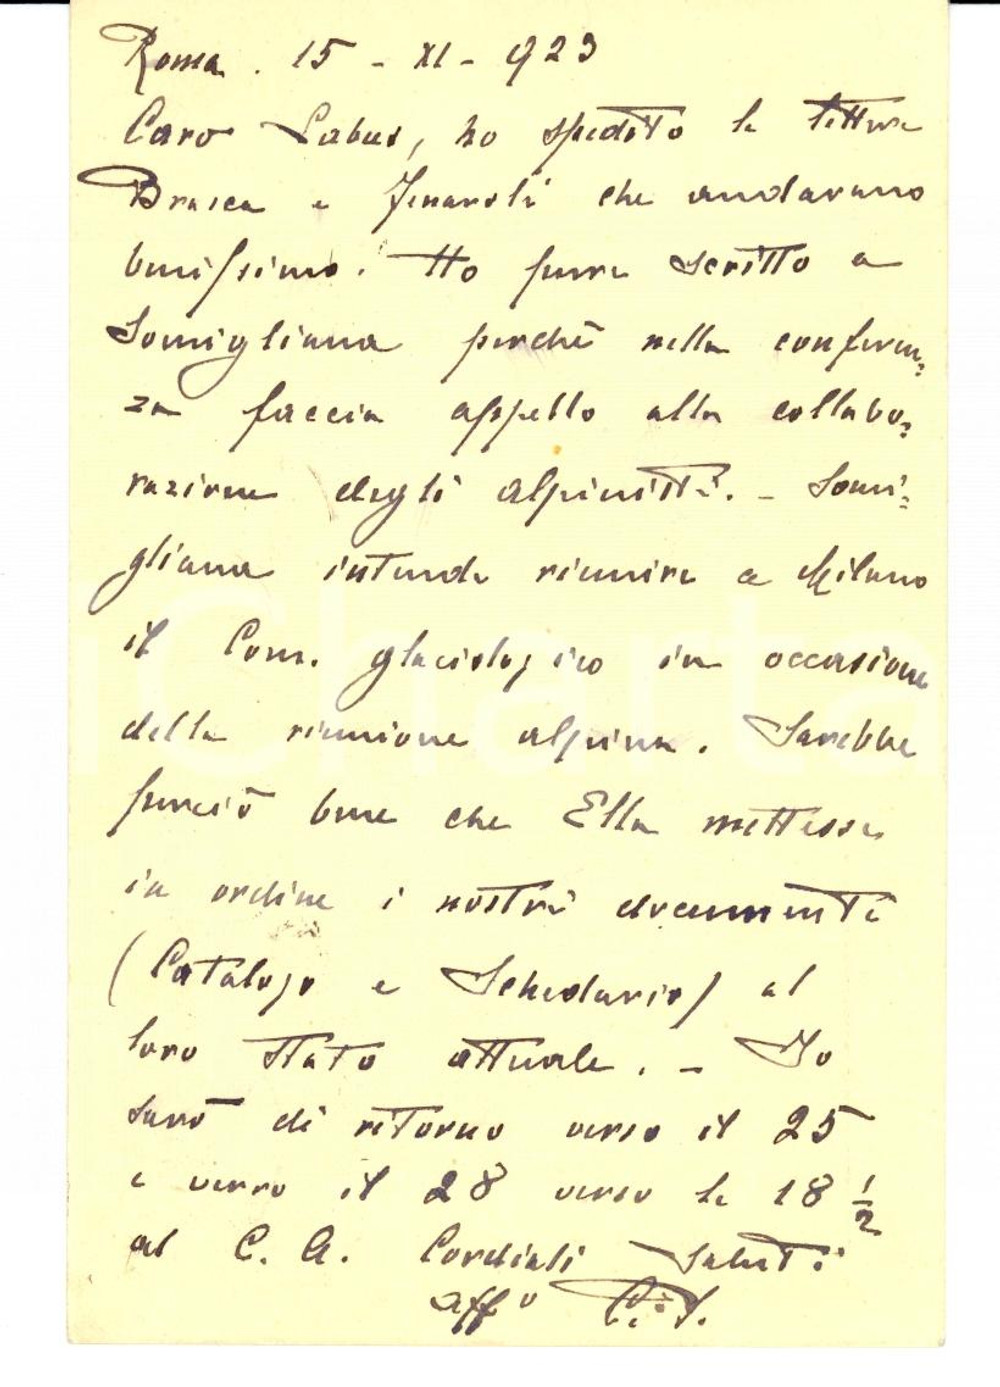 Roma. 15 - XI - 923
Caro Labus, ho spedito le lettere
Brasca e Tenaroli che andavano
benissimo. Ho pure scritto a
Somigliana perchè nella conferen=
za faccia appello alla collabo=
razione degli alpinisti. - Somi=
gliana intende riunire a Milano
il Com. glaciologico in occasione
della riunione alpina. Sarebbe
perciò bene che Ella mettesse
in ordine i nostri documenti
(Catalogo e Schedario) al
loro stato attuale. - Io
sarò di ritorno verso il 25
e verrò il 28 verso le 18 1/2
al C. A. Cordiali saluti
aff°